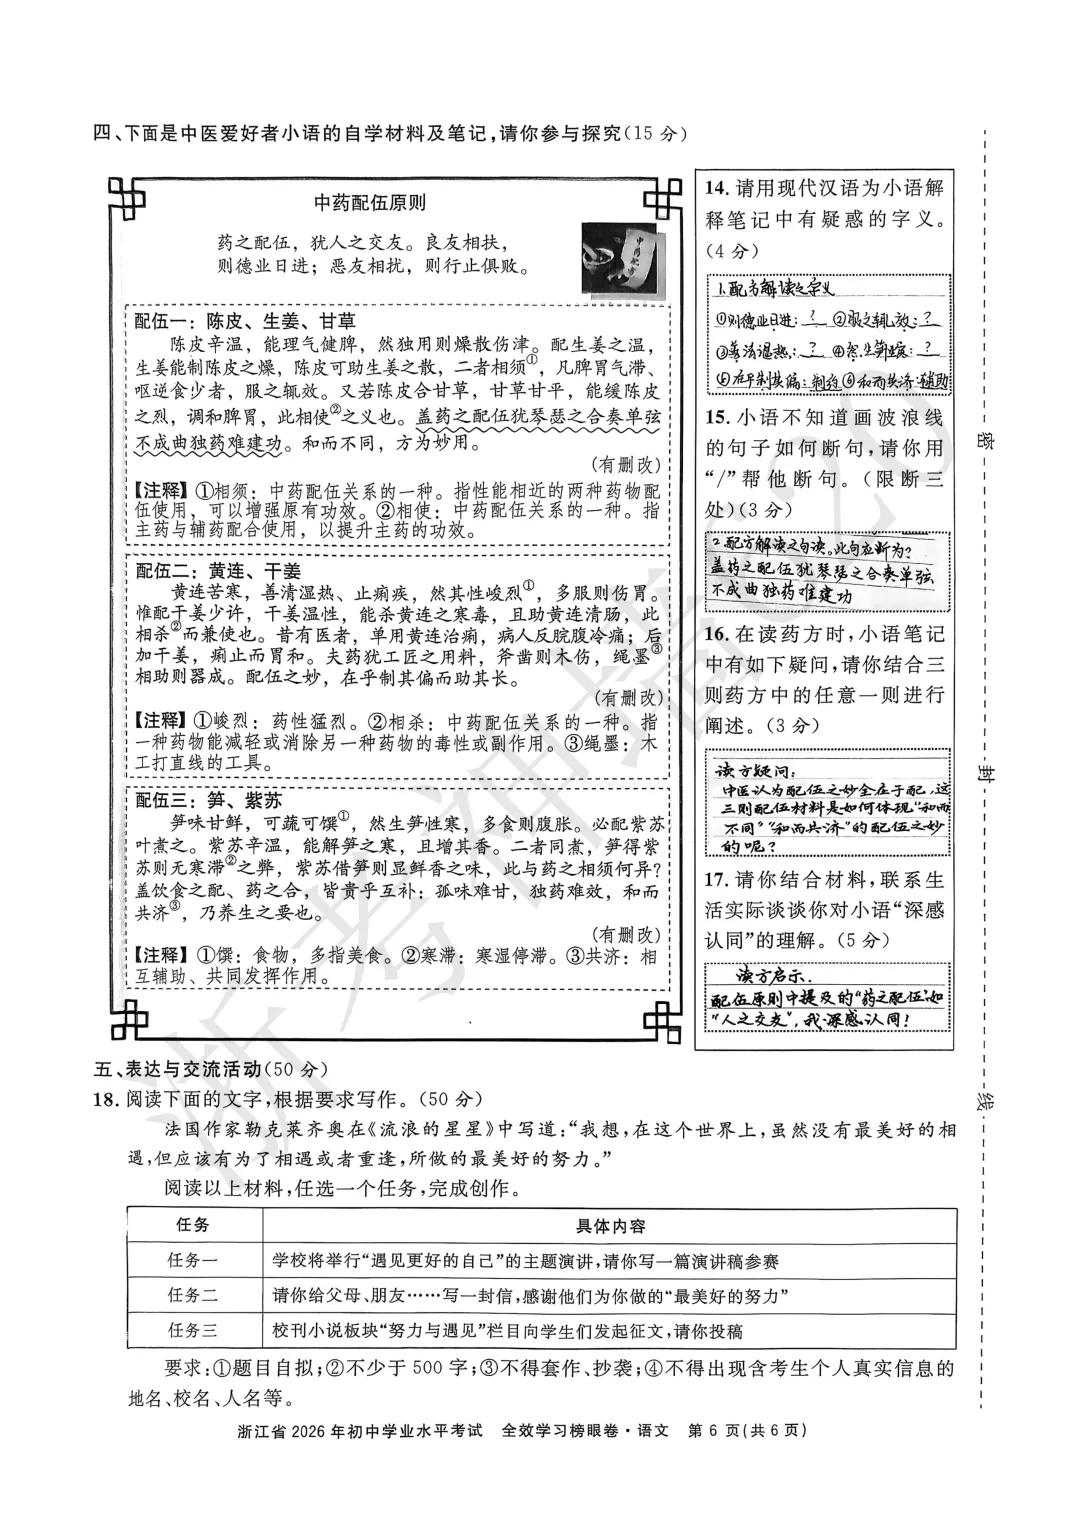 四、下面是中医爱好者小语的自学材料及笔记,请你参与探究(15 分)
中药配伍原则
药之配伍，犹人之交友。良友相扶，
则德业日进；恶友相扰，则行止俱败。
配伍一：陈皮、生姜、甘草
陈皮辛温，能理气健脾，然独用则燥散伤津。配生姜之温，
生姜能制陈皮之燥，陈皮可助生姜之散，二者相须①，凡脾胃气滞、
呕逆食少者，服之辄效。又若陈皮合甘草，甘草甘平，能缓陈皮
之烈，调和脾胃，此相使②之义也。盖药之配伍犹琴瑟之合奏单弦
不成曲独药难建功。和而不同，方为妙用。
(有删改)
【注释】①相须：中药配伍关系的一种。指性能相近的两种药物配
伍使用，可以增强原有功效。②相使：中药配伍关系的一种。指
主药与辅药配合使用，以提升主药的功效。
配伍二：黄连、干姜
黄连苦寒，善清湿热、止痢疾，然其性峻烈①，多服则伤胃。
惟配干姜少许，干姜温性，能杀黄连之寒毒，且助黄连清肠，此
相杀②而兼使也。昔有医者，单用黄连治痢，病人反脘腹冷痛；后
加干姜，痢止而胃和。夫药犹工匠之用料，斧凿则木伤，绳墨③
相助则器成。配伍之妙，在乎制其偏而助其长。
(有删改)
【注释】①峻烈：药性猛烈。②相杀：中药配伍关系的一种。指
一种药物能减轻或消除另一种药物的毒性或副作用。③绳墨：木
工打直线的工具。
配伍三：笋、紫苏
笋味甘鲜，可蔬可馔①，然生笋性寒，多食则腹胀。必配紫苏
叶煮之。紫苏辛温，能解笋之寒，且增其香。二者同煮，笋得紫
苏则无寒滞②之弊，紫苏借笋则显鲜香之味，此与药之相须何异？
盖饮食之配、药之合，皆贵乎互补：孤味难甘，独药难效，和而
共济③，乃养生之要也。
(有删改)
【注释】①馔：食物，多指美食。②寒滞：寒湿停滞。③共济：相
互辅助、共同发挥作用。
14. 请用现代汉语为小语解
释笔记中有疑惑的字义。
(4 分)
1.配方解读之字义
①则德业日进：？ ②服之辄效：？
③善清湿热：？ ④然生笋性寒：？
⑤在乎制其偏：制药 ⑥和而共济：辅助
15. 小语不知道画波浪线
的句子如何断句,请你用
“/”帮他断句。(限断三
处)(3 分)
2.配方解读之句读。此句应断为？
盖药之配伍犹琴瑟之合奏单弦
不成曲独药难建功
16. 在读药方时,小语笔记
中有如下疑问,请你结合三
则药方中的任意一则进行
阐述。(3 分)
读方疑问：
中医认为配伍之妙全在于配，这
三则配伍材料是如何体现“和而
不同”“和而共济”的配伍之妙
的呢？
17. 请你结合材料,联系生
活实际谈谈你对小语“深感
认同”的理解。(5 分)
读方启示.
配伍原则中提及的“药之配伍”如
“人之交友”,我深感认同！
密
封
线
五、表达与交流活动(50 分)
18. 阅读下面的文字,根据要求写作。(50 分)
法国作家勒克莱齐奥在《流浪的星星》中写道:“我想,在这个世界上,虽然没有最美好的相
遇,但应该有为了相遇或者重逢,所做的最美好的努力。”
阅读以上材料,任选一个任务,完成创作。
任务 具体内容
任务一 学校将举行“遇见更好的自己”的主题演讲,请你写一篇演讲稿参赛
任务二 请你给父母、朋友……写一封信,感谢他们为你做的“最美好的努力”
任务三 校刊小说板块“努力与遇见”栏目向学生们发起征文,请你投稿
要求:①题目自拟;②不少于 500 字;③不得套作、抄袭;④不得出现含考生个人真实信息的
地名、校名、人名等。
浙江省 2026 年初中学业水平考试 全效学习榜眼卷·语文 第 6 页(共 6 页)